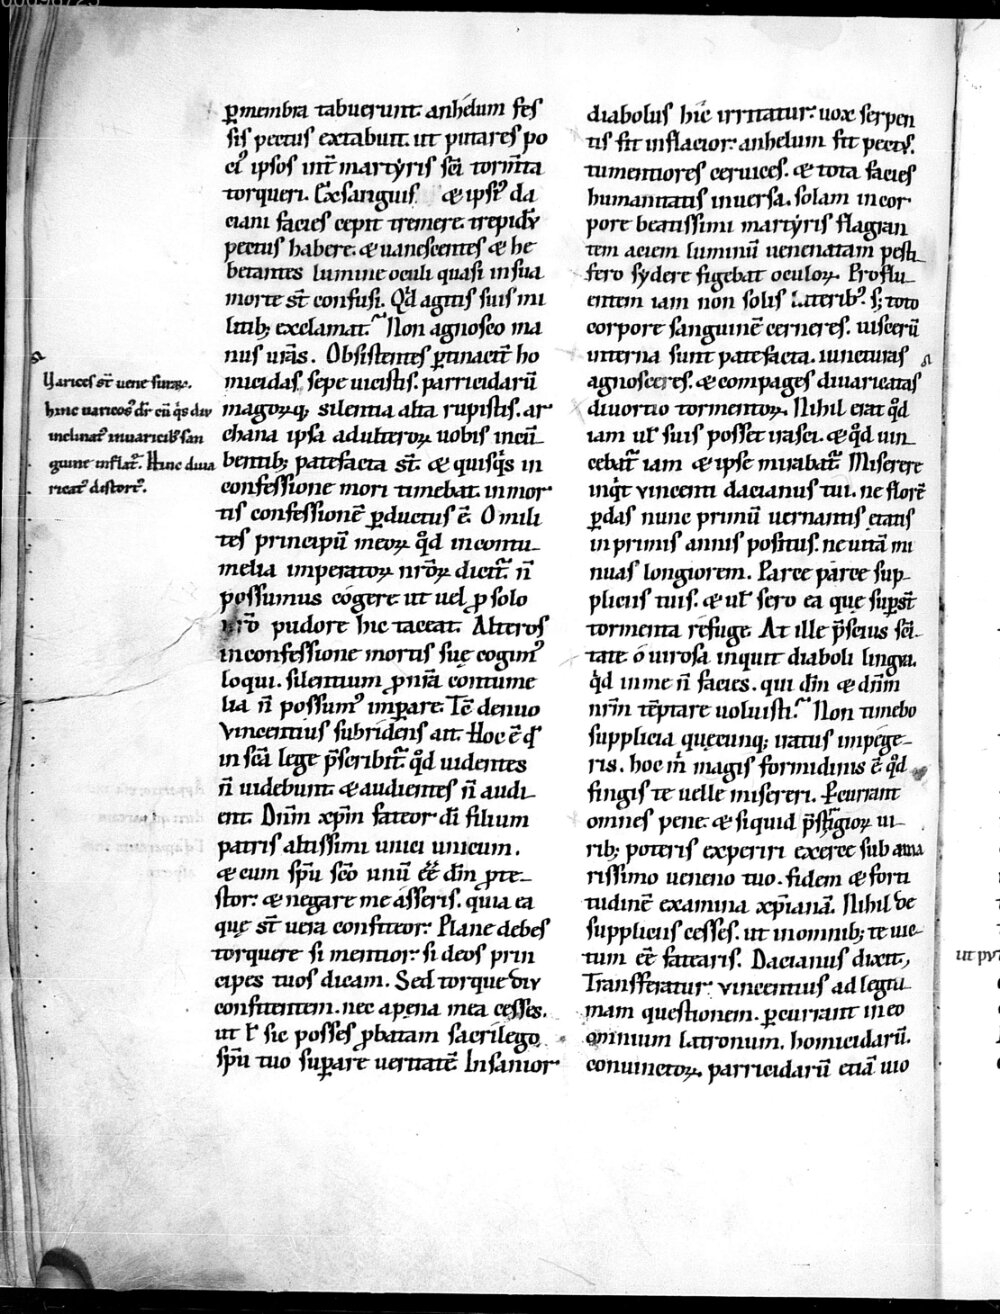 00098725
ꝑmembra tabuerunt. anhelum fes
sis pectus extabuit. ut putares po
ci᷒ ipsos int̄ martyris sc̄i torm̄ta
torqueri. Exsanguis & ipsi᷒ da
ciani facies cepit tremere. trepidū
pectus habere. & uanescentes & he
betantes lumine oculi quasi in sua
morte st̄ confusi. Qd̄ agitis suis mi
litib; exclamat. Non agnosco ma
nus ur̄as. Obsistentes ꝑtinacit̄ ho
micidas sepe uicistis. parricidarū
magoꝝq; silentia alta rupistis. ar
chana ipsa adulteroꝝ uobis incū
bentib; patefacta st̄. & quisq̇s in
confessione mori timebat. in mor
tis confessionē ꝑductus ē. O mili
tes principū meoꝝ qd̄ in contu
melia imperatoꝝ nr̄oꝝ dicit᷒. n̄
possumus cogere ut uel ꝓ solo
nr̄o pudore hic taceat. Alteros
in confessione mortis suę cogim᷒
loqui. silentium ꝓ nr̄a contume
lia n̄ possum᷒ imꝑare. Tc̄ denuo
vincentius subridens ait. Hoc ē qd̄
in sc̄a lege p̄scribit᷒ qd̄ uidentes
n̄ uidebunt. & audientes n̄ audi
ent. Dn̄m xp̄m fateor dī filium
patris altissimi unici unicum.
& cum sp̄u sc̄o unū ēē dm̄ ꝓte
stor. & negare me asseris. quia ea
quę st̄ uera confiteor. Plane debes
torquere si mentior. si deos prin
cipes tuos dicam. Sed torque diu
confitentem. nec a pena mea cesses.
ut ł sic posses ꝓbatam sacrilego
sp̄u tuo suꝑare ueritatē. Insanior
diabolus hic irritatur. uox serpen
tis fit inflacior. anhelum fit pect᷒.
tumentiores ceruices. & tota facies
humanitatis inuersa. solam in cor
pore beatissimi martyris flagran
tem aciem luminū uenenatam pesti
fero sydere figebat oculoꝝ. Proflu
entem iam non solis laterib᷒. s; toto
corpore sanguinē cerneres. uiscerū
interna sunt patefacta. iuncturas
agnosceres. & compages diuaricatas
diuortio tormentoꝝ. Nihil erat qd̄
iam uł suis posset irasci. & qd̄ uin
cebat᷒ iam & ipse mirabat᷒. Miserere
inq̇t vincenti dacianus tui. ne florē
ꝑdas nunc primū uernantis etatis
in primis annis positus. ne uitā mi
nuas longiorem. Parce parce sup
pliciis tuis. & uł sero ea quę suꝑst̄
tormenta refuge. At ille p̄scius sc̄i
tate. o uirosa inquit diaboli lingua.
qd̄ in me n̄ facies. qui dm̄ & dn̄m
nr̄m tēptare uoluisti. Non timebo
supplicia quęcunq; iratus impege
ris. hoc m̄ magis formidinis ē qd̄
fingis te uelle misereri. Ꝑcurrant
omnes pene. & siquid p̄stigioꝝ ui
rib; poteris experiri exerce sub ama
rissimo ueneno tuo. fidem & forti
tudinē examina xp̄ianā. Nihil de
suppliciis cesses. ut in omnib; te uic
tum ēē fatearis. Dacianus dixit,
Transferatur vincentius ad legiti
mam questionem. ꝑcurrant in eo
omnium latronum. homicidarū.
conuictoꝝ. parricidarū etiā uio
Varices st̄ uene
hinc uaricos᷒ dr̄ cū q̇s diu
inclinat᷒ in uaricib᷒ san
guine inflat᷒. Hinc diua
ricat᷒ distort᷒.